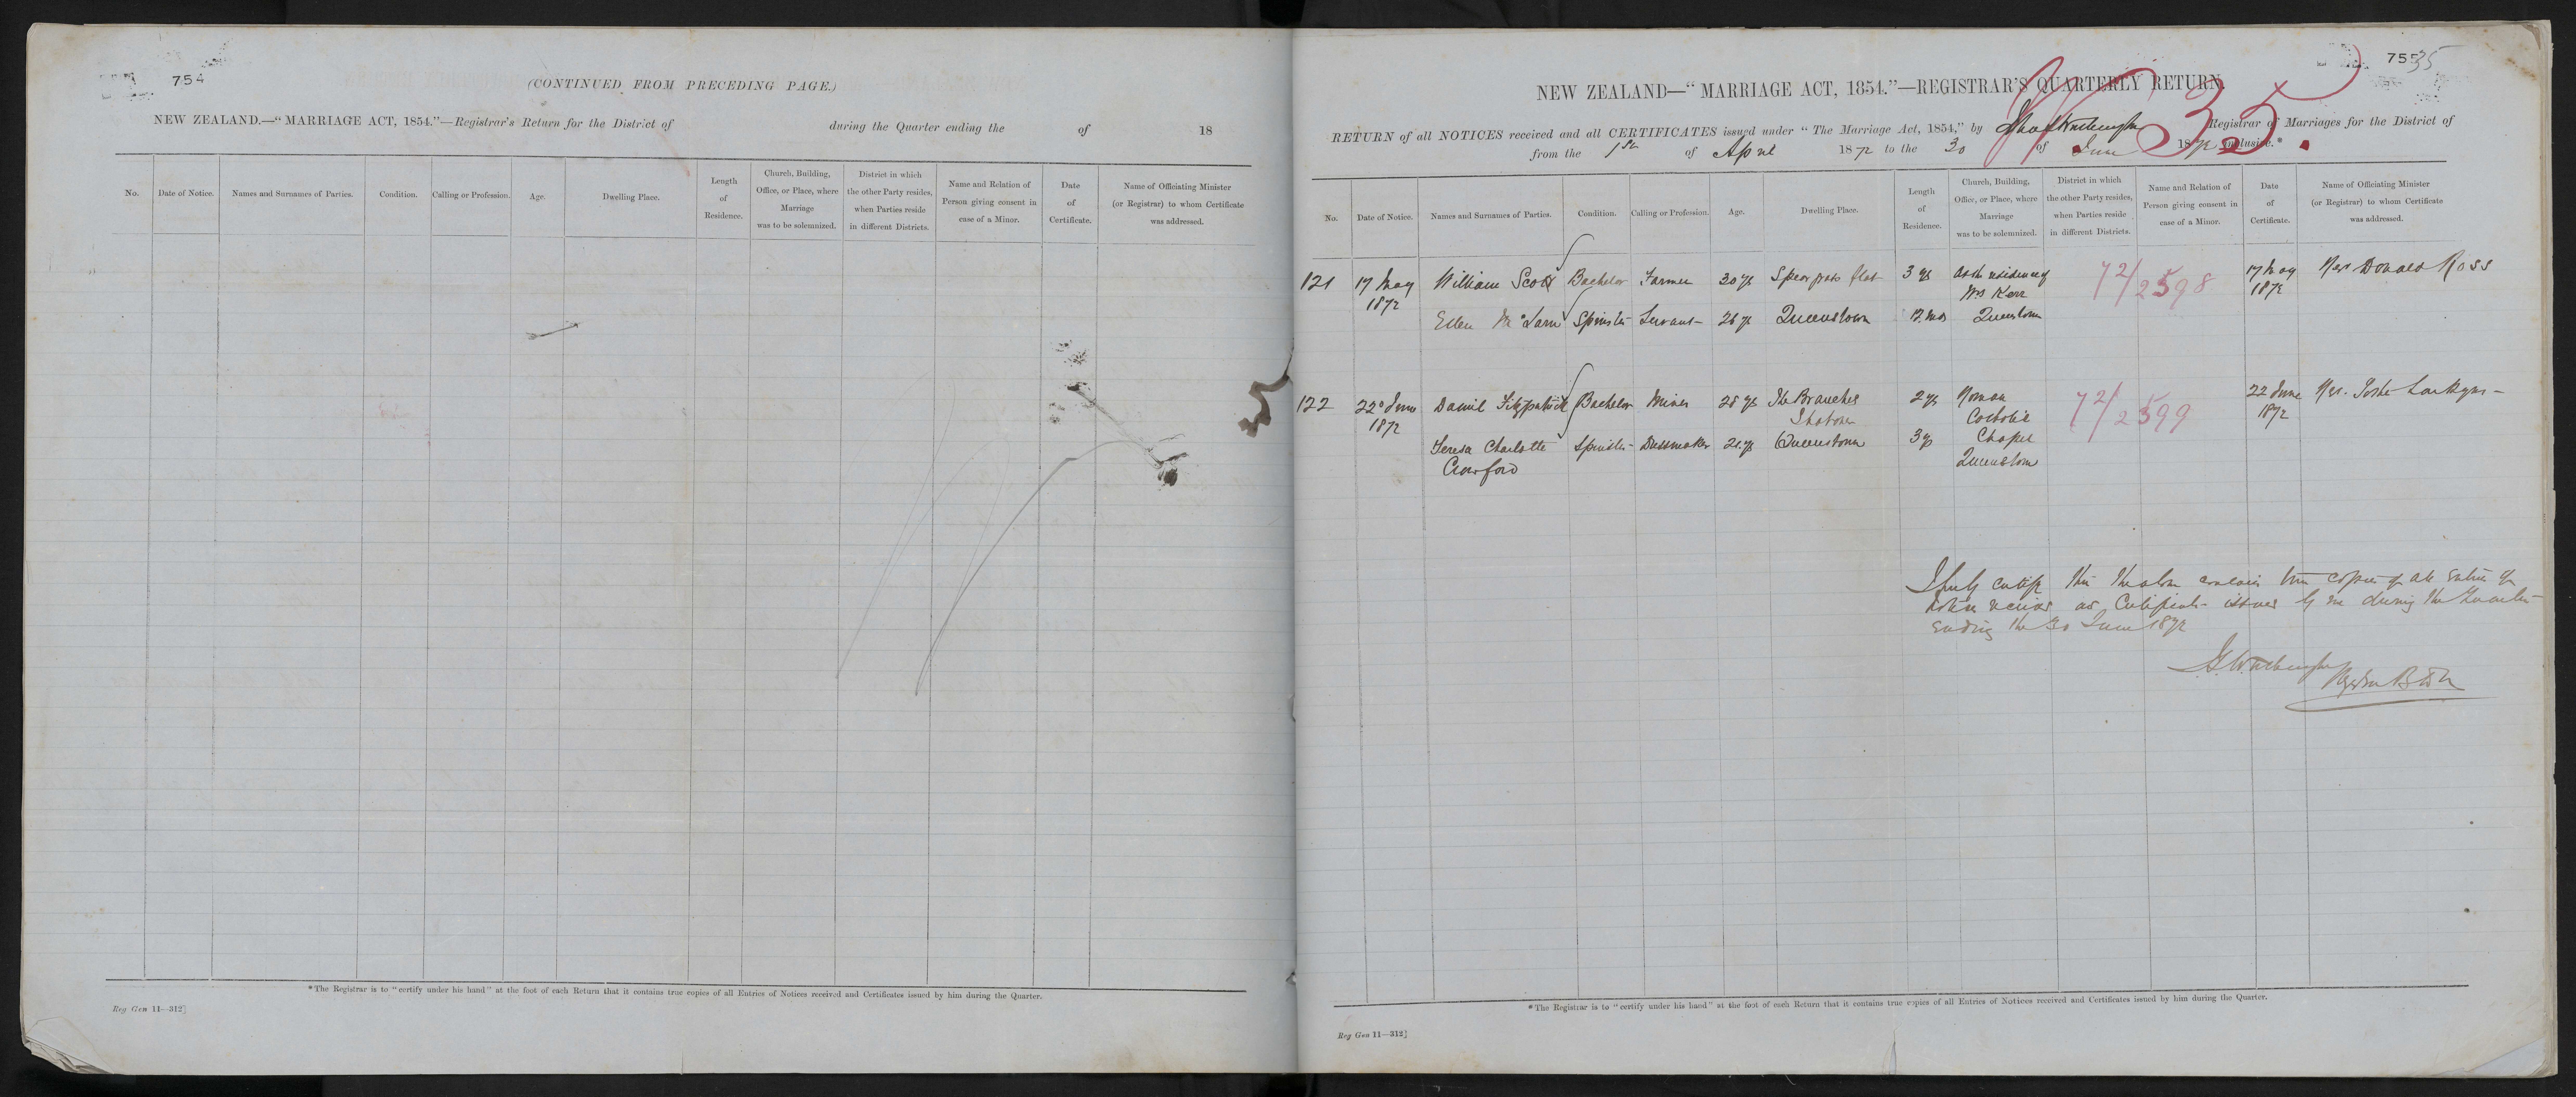 754
(CONTINUED FROM PRECEDING PAGE.)
NEW ZEALAND.—"MARRIAGE ACT, 1854."—Registrar's Return for the District of during the Quarter ending the of 18
No. Date of Notice. Names and Surnames of Parties. Condition. Calling or Profession. Age. Dwelling Place. Length of Residence. Church, Building, Office, or Place, where Marriage was to be solemnized. District in which the other Party resides, when Parties reside in different Districts. Name and Relation of Person giving consent in case of a Minor. Date of Certificate. Name of Officiating Minister (or Registrar) to whom Certificate was addressed.
*The Registrar is to "certify under his hand" at the foot of each Return that it contains true copies of all Entries of Notices received and Certificates issued by him during the Quarter.
Reg Gen 11—312]
755 35
NEW ZEALAND—"MARRIAGE ACT, 1854."—REGISTRAR'S QUARTERLY RETURN.
35.
RETURN of all NOTICES received and all CERTIFICATES issued under "The Marriage Act, 1854," by Registrar of Marriages for the District of
from the 1st of April 1872 to the 30 of June 1872 inclusive.*
No. Date of Notice. Names and Surnames of Parties. Condition. Calling or Profession. Age. Dwelling Place. Length of Residence. Church, Building, Office, or Place, where Marriage was to be solemnized. District in which the other Party resides, when Parties reside in different Districts. Name and Relation of Person giving consent in case of a Minor. Date of Certificate. Name of Officiating Minister (or Registrar) to whom Certificate was addressed.
121 17 May William Scott Bachelor Farmer 30 ys Spear grass flat 3 ys At the residence of 72/2598 17 May Rev Donald Ross
1872 Mrs Kerr 1872
Ellen Spinster Servant 26 ys Queenstown 12 mos Queenstown
122 22d June Daniel Fitzpatrick Bachelor Miner 28 ys The Branches 2 ys Roman 72/2599 22 June Rev.
1872 Shotover Catholic 1872
Teresa Charlotte Spinster Dressmaker 21 ys Queenstown 3 ys Chapel
Crawford Queenstown
I hereby certify that the above contains true copies of all Entries of
Notices received and Certificates issued by me during the Quarter
Ending the 30 June 1872
Registrar
*The Registrar is to "certify under his hand" at the foot of each Return that it contains true copies of all Entries of Notices received and Certificates issued by him during the Quarter.
Reg Gen 11—312]